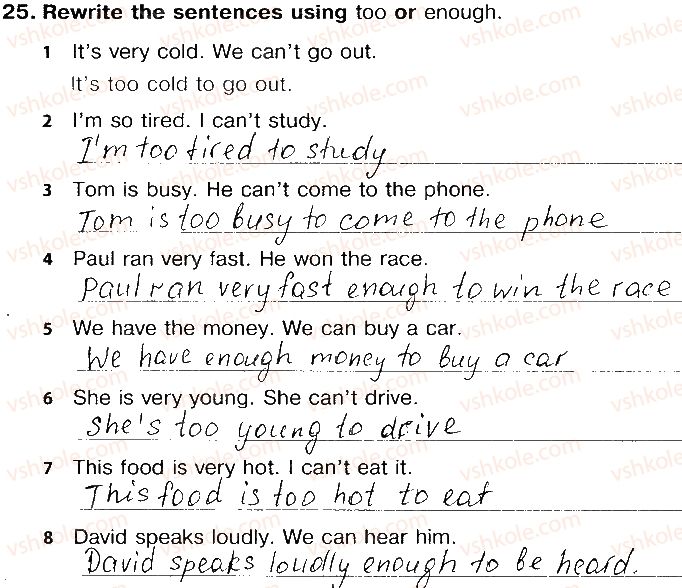 25. Rewrite the sentences using too or enough.
1 It's very cold. We can't go out.
It's too cold to go out.
2 I'm so tired. I can't study.
I'm too tired to study
3 Tom is busy. He can't come to the phone.
Tom is too busy to come to the phone
4 Paul ran very fast. He won the race.
Paul ran very fast enough to win the race
5 We have the money. We can buy a car.
We have enough money to buy a car
6 She is very young. She can't drive.
She's too young to drive
7 This food is very hot. I can't eat it.
This food is too hot to eat
8 David speaks loudly. We can hear him.
David speaks loudly enough to be heard.